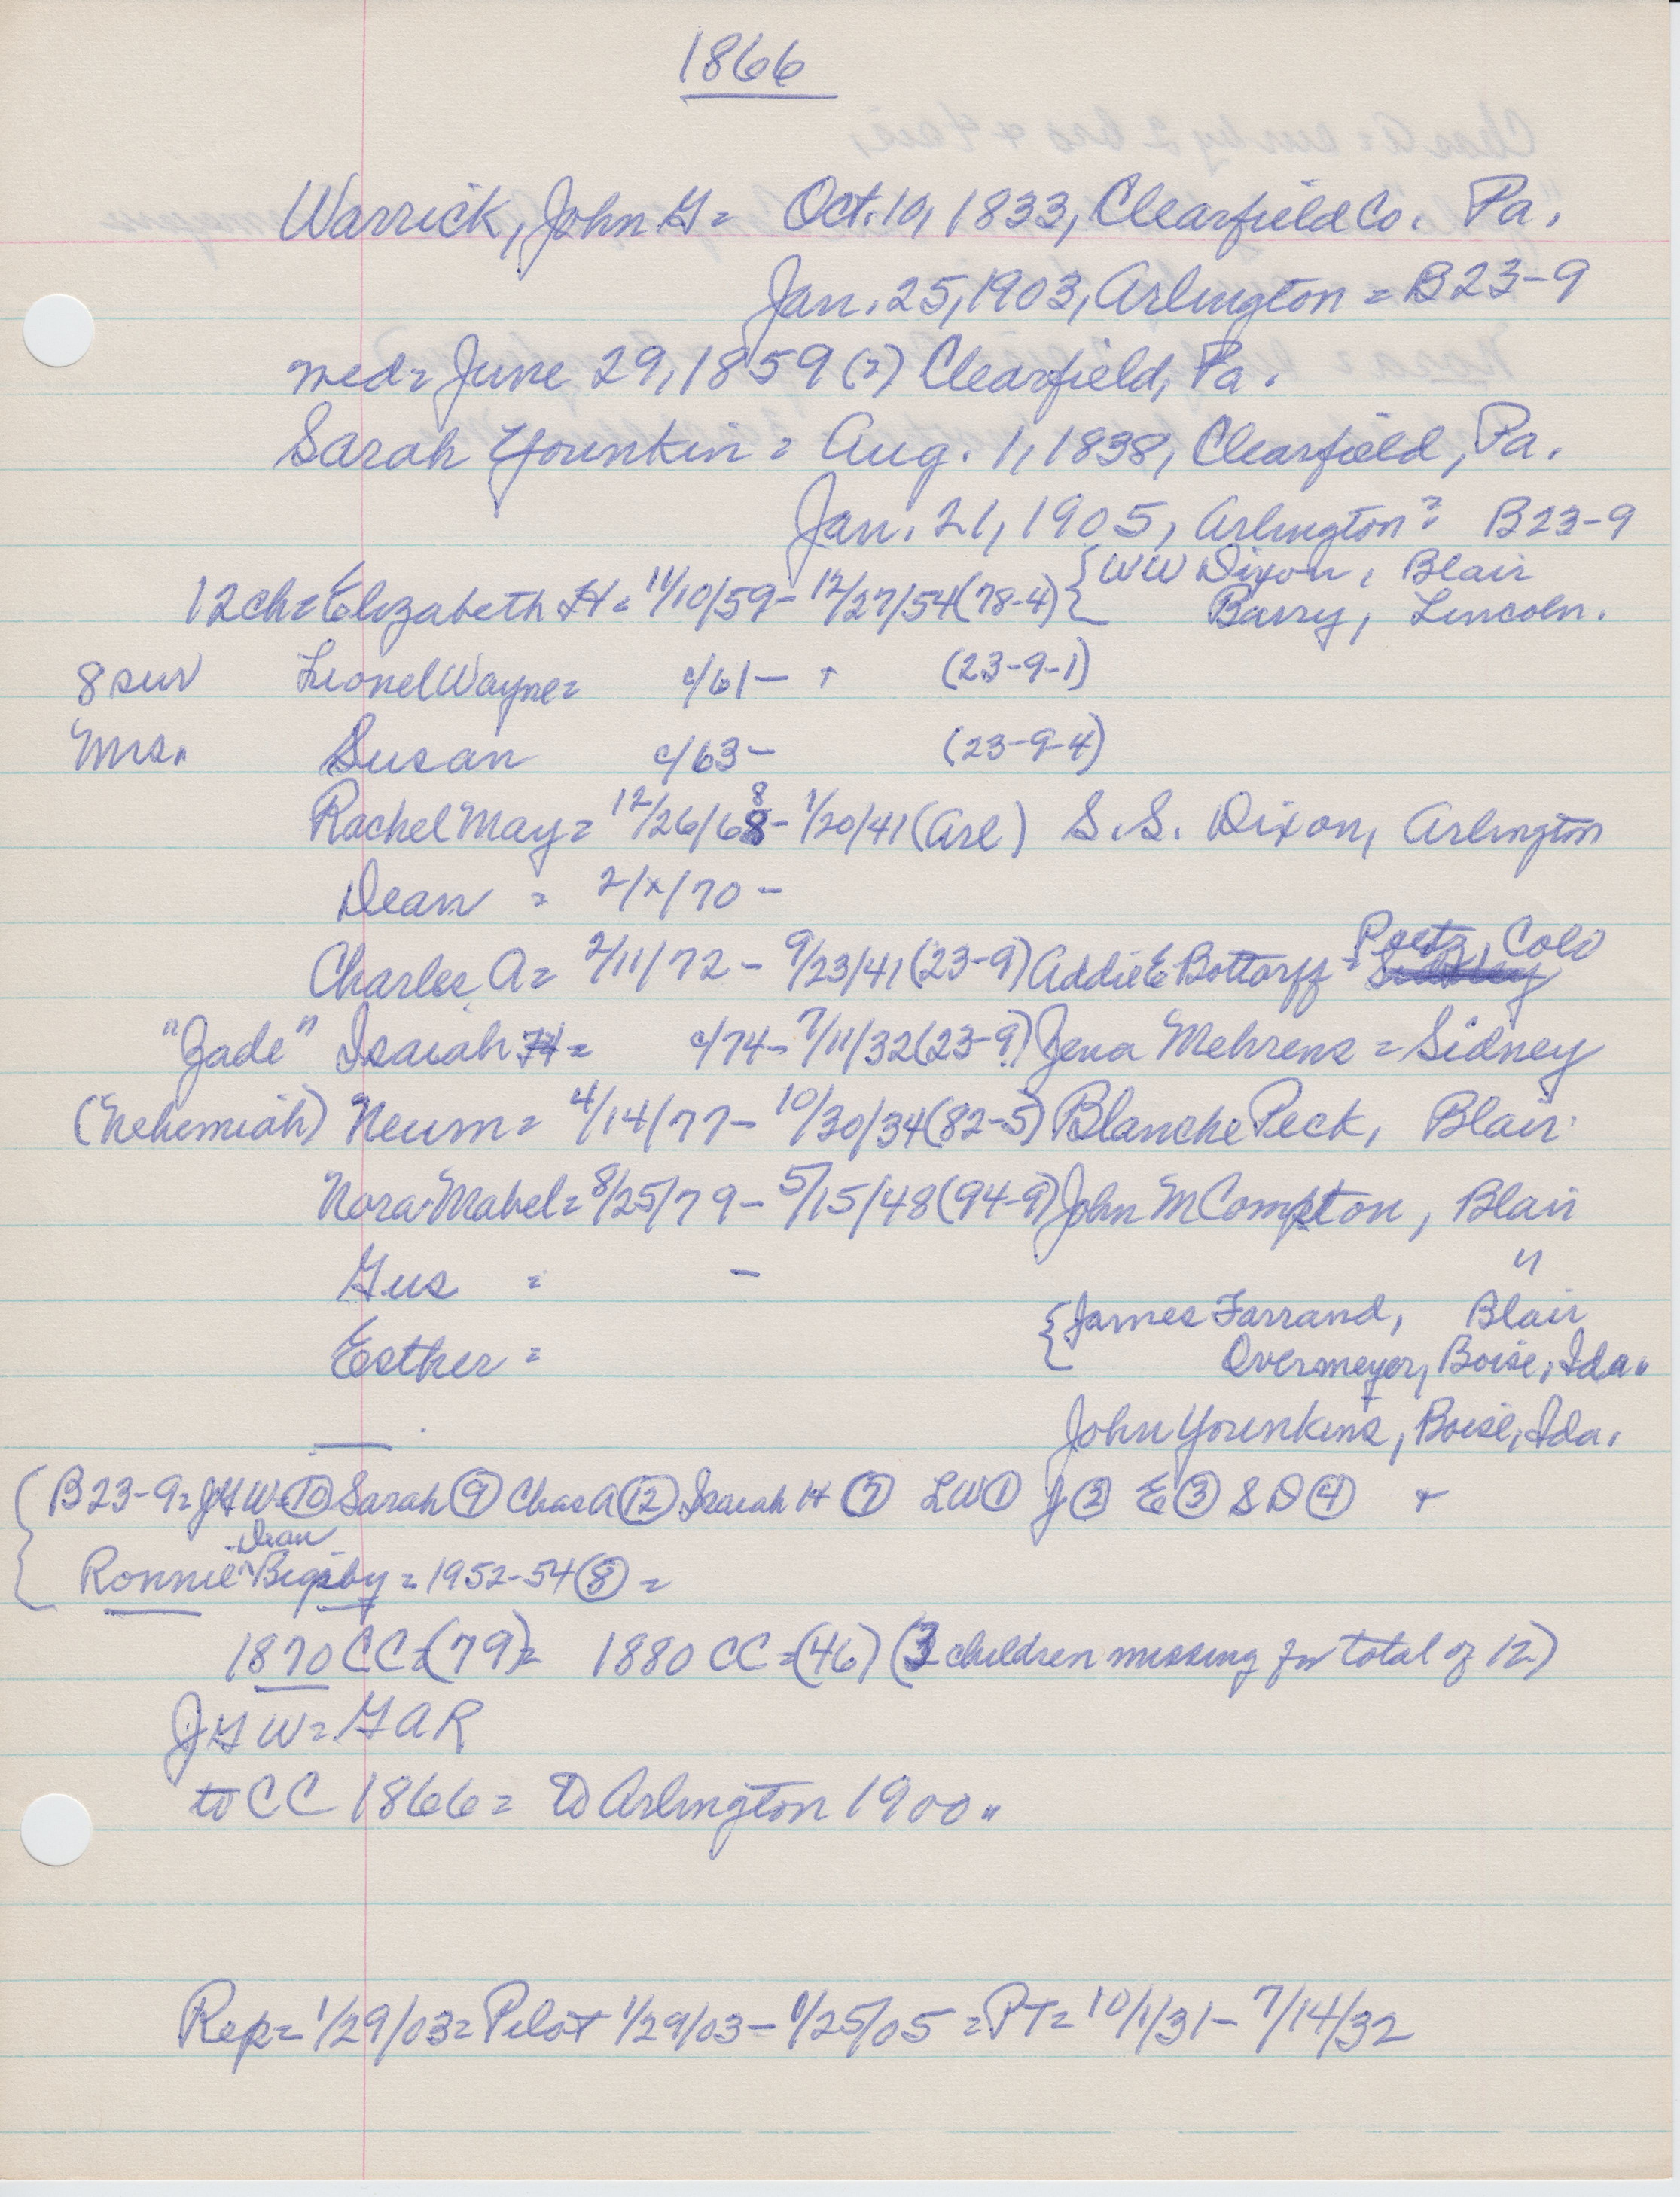 1866
Warrick, John G = Oct. 10, 1833, Clearfield Co. Pa.
Jan. 25, 1903, Arlington = B23-9
med = June 29, 1859 (?) Clearfield, Pa.
Sarah Younkin = Aug. 1, 1838, Clearfield, Pa.
Jan. 21, 1905, Arlington = B23-9
12 ch = Elizabeth H = 11/10/59 - 12/27/54 (78-4) { WW Dixon, Blair
Barry, Lincoln.
8 sur Lionel Wayne = c/61 - + (23-9-1)
Mrs. Susan c/63 - (23-9-4)
Rachel May = 12/26/68 - 1/20/41 (Arl) S.S. Dixon, Arlington
Dean = 2/x/70 -
Charles A = 2/11/72 - 9/23/41 (23-9) Addie E Bottorff = Peetz, Colo
"Zade" Isaiah H = c/74 - 7/11/32 (23-9) Jena Mehrens = Sidney
(Nehemiah) Neum = 4/14/77 - 10/30/34 (82-5) Blanche Peck, Blair
Nora Mabel = 8/25/79 - 5/15/48 (94-9) John M Compton, Blair
Gus = - "
{ James Farrand, Blair
Esther = Overmeyer, Boise, Ida.
John Younkins, Boise, Ida.
{ B23-9 = JGW = 10 Sarah 9 Chas A 12 Isaiah H 7 LW 1 J 2 E 3 S D 4 +
Dean
Ronnie Bigsby = 1952-54 8 =
1870 CC = (79) = 1880 CC = (46) (3 children missing for total of 12)
JGW = GAR
to CC 1866 = to Arlington 1900.
Rep = 1/29/03 = Pilot 1/29/03 - 1/25/05 = PT = 10/1/31 - 7/14/32